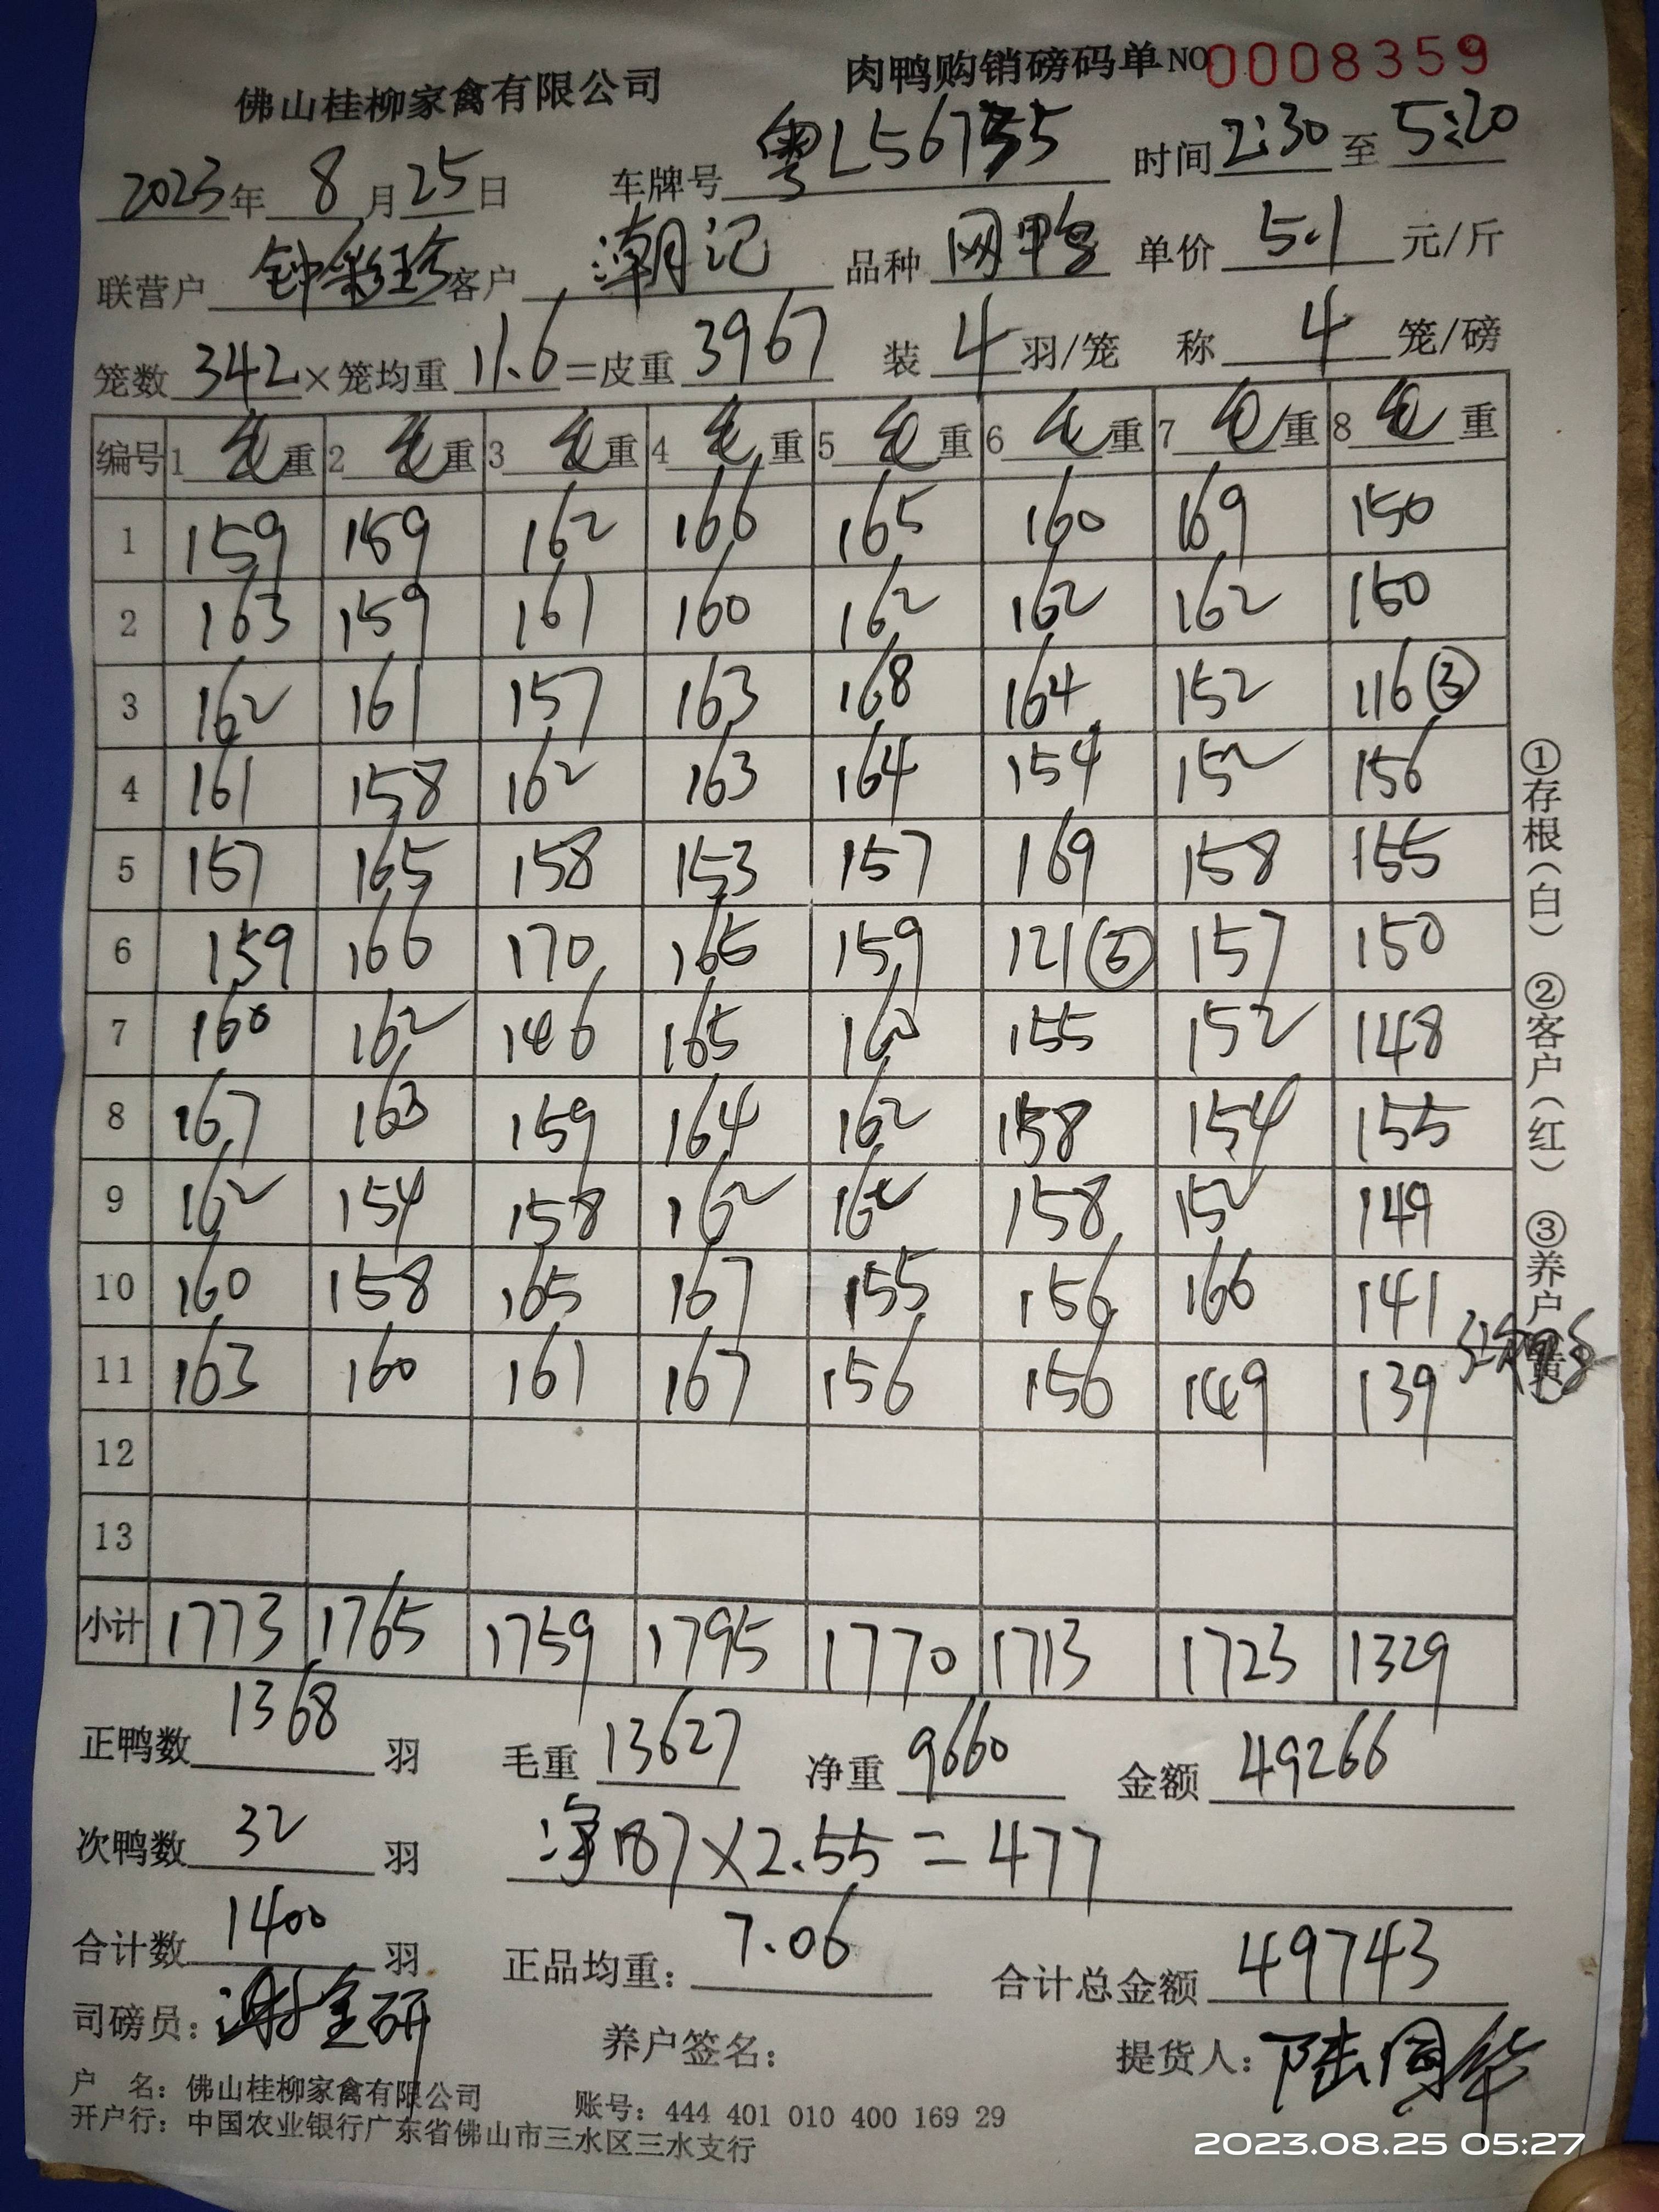 佛山桂柳家禽有限公司 肉鸭购销磅码单 NO 0008359
2023年 8月25日 车牌号 粤L567 5 时间 2:30 至 5:20
联营户 钟彩珍 客户 潮记 品种 网鸭 单价 5.1 元/斤
笼数 342 ×笼均重 11.6 =皮重 3967 装 4 羽/笼 称 4 笼/磅
编号 1 毛重 2 毛重 3 毛重 4 毛重 5 毛重 6 毛重 7 毛重 8 毛重
1 159 159 162 166 165 160 169 150
2 163 159 161 160 162 162 162 150
3 162 161 157 163 168 164 152 116③
4 161 158 162 163 164 154 152 156
5 157 165 158 153 157 169 158 155
6 159 166 170 165 159 121⑤ 157 150
7 160 162 146 165 160 155 152 148
8 167 163 159 164 162 158 154 155
9 162 154 158 162 162 158 152 149
10 160 158 165 167 155 156 166 141
11 163 160 161 167 156 156 149 139
12
13
小计 1773 1765 1759 1795 1770 1713 1723 1329
正鸭数 1368 羽 毛重 13627 净重 9660 金额 49266
次鸭数 32 羽 净187×2.55=477
合计数 1400 羽 正品均重: 7.06 合计总金额 49743
司磅员: 谢金研 养户签名: 提货人: 陆国华
户 名: 佛山桂柳家禽有限公司 账号: 444 401 010 400 169 29
开户行: 中国农业银行广东省佛山市三水区三水支行
①存根(白) ②客户(红) ③养户
2023.08.25 05:27